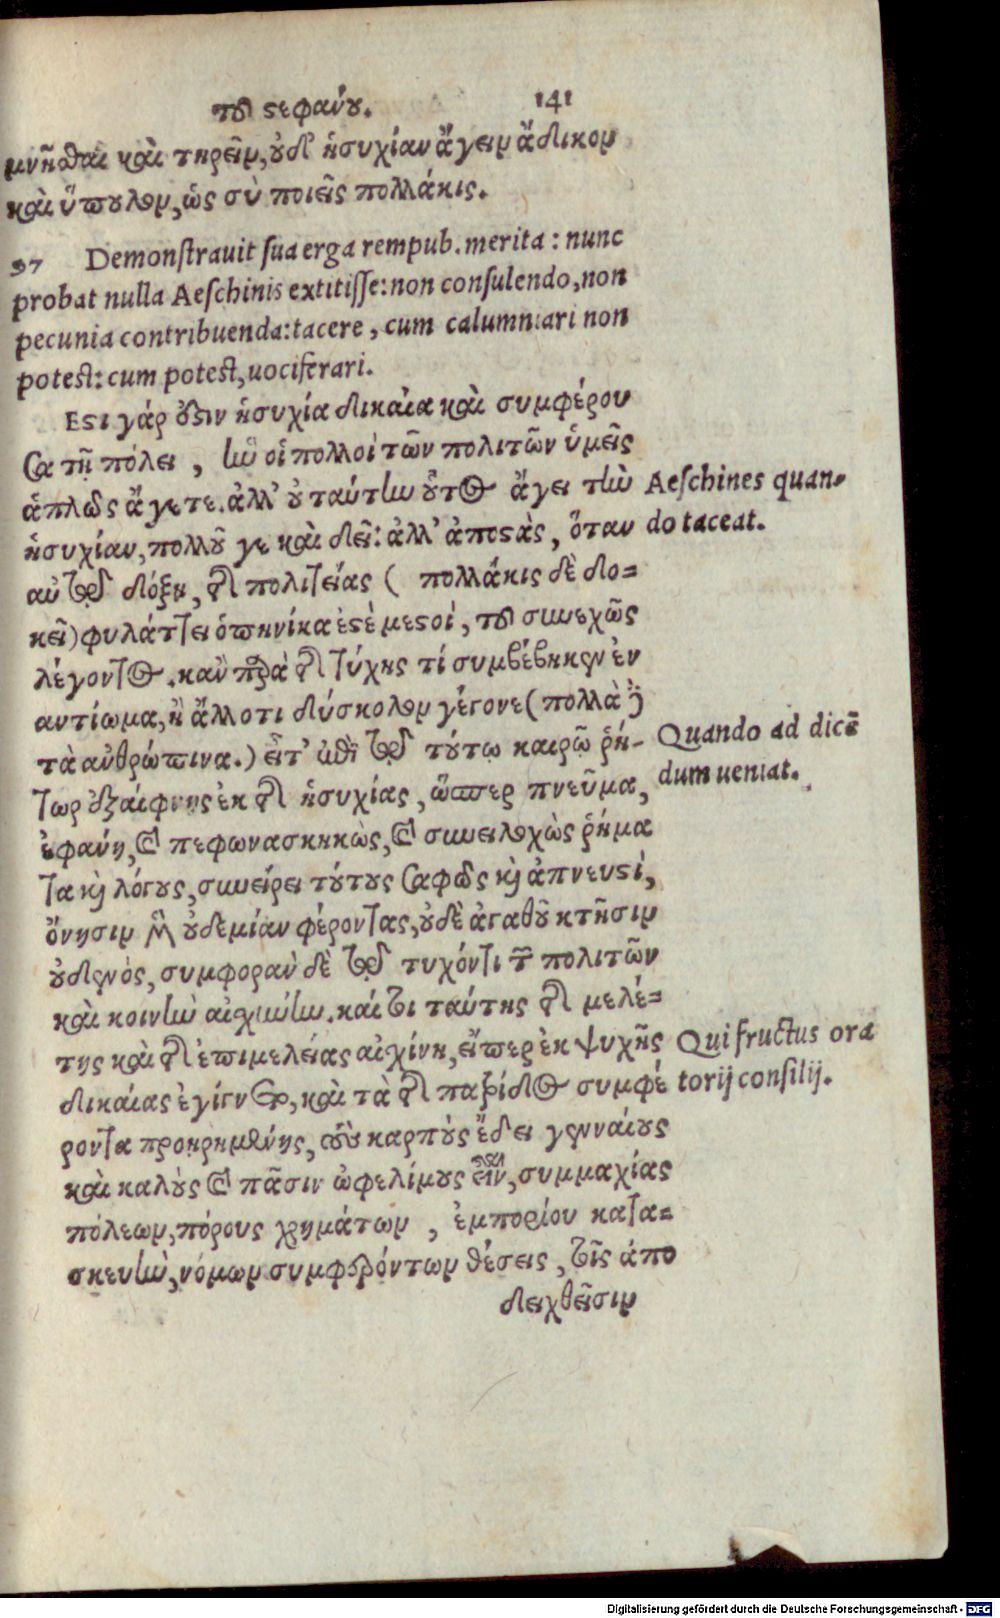 τοῦ στεφάνου. 141
μνῆσθαι καὶ τηρεῖν, οὐδ' ἡσυχίαν ἄγειν ἄδικον
καὶ ὕπουλον, ὡς σὺ ποιεῖς πολλάκις.
97 Demonſtrauit ſua erga rempub. merita : nunc
probat nulla Aeſchinis extitiſſe: non conſulendo, non
pecunia contribuenda: tacere, cum calumniari non
poteſt: cum poteſt, uociferari.
Εστι γάρ ὅστιν ἡσυχία δικαία καὶ συμφέρου
σα τῇ πόλει, ἣν οἱ πολλοὶ τῶν πολιτῶν ὑμεῖς
ἁπλῶς ἄγετε. ἀλλ' οὐ ταύτην οὗτος ἄγει τὴν
Aeſchines quan-
ἡσυχίαν, πολλοῦ γε καὶ δεῖ: ἀλλ' ἀποστὰς, ὅταν
do taceat.
αὐτῷ δόξῃ, τῆς πολιτείας ( πολλάκις δὲ δο=
κεῖ) φυλάττει ὁπηνίκα ἐστὲ μεστοί, τοῦ συνεχῶς
λέγοντος. κἂν παρὰ τῆς τύχης τί συμβέβηκεν ἐν
αντίωμα, ἢ ἄλλο τι δύσκολον γέγονε (πολλὰ δὲ
τὰ ἀνθρώπινα.) εἶτ' ἐπὶ τῷ τούτῳ καιρῷ ῥή-
Quando ad dicē
τωρ ἐξαίφνης ἐκ τῆς ἡσυχίας, ὥσπερ πνεῦμα,
dum ueniat.
ἐφάνη, καὶ πεφωνασκηκὼς, καὶ συνειλοχὼς ῥήμα
τα καὶ λόγους, συνείρει τούτους σαφῶς καὶ ἀπνευστί,
ὄνησιν μὲν οὐδεμίαν φέροντας, οὐδὲ ἀγαθοῦ κτῆσιν
οὐδενὸς, συμφορὰν δὲ τῷ τυχόντι τῶν πολιτῶν
καὶ κοινὴν αἰσχύνην. καίτοι ταύτης τῆς μελέ=
της καὶ τῆς ἐπιμελείας αἰσχίνη, εἴπερ ἐκ ψυχῆς
Qui fructus ora
δικαίας ἐγίγνετο, καὶ τὰ τῆς πατρίδος συμφέ
torij conſilij.
ροντα προῃρημένης, τοὺς καρποὺς ἔδει γενναίους
καὶ καλοὺς καὶ πᾶσιν ὠφελίμους εἶναι, συμμαχίας
πόλεων, πόρους χρημάτων, ἐμπορίου κατα=
σκευὴν, νόμων συμφερόντων θέσεις, τοῖς ἀπο
δειχθεῖσιν
Digitalisierung gefördert durch die Deutsche Forschungsgemeinschaft - DFG